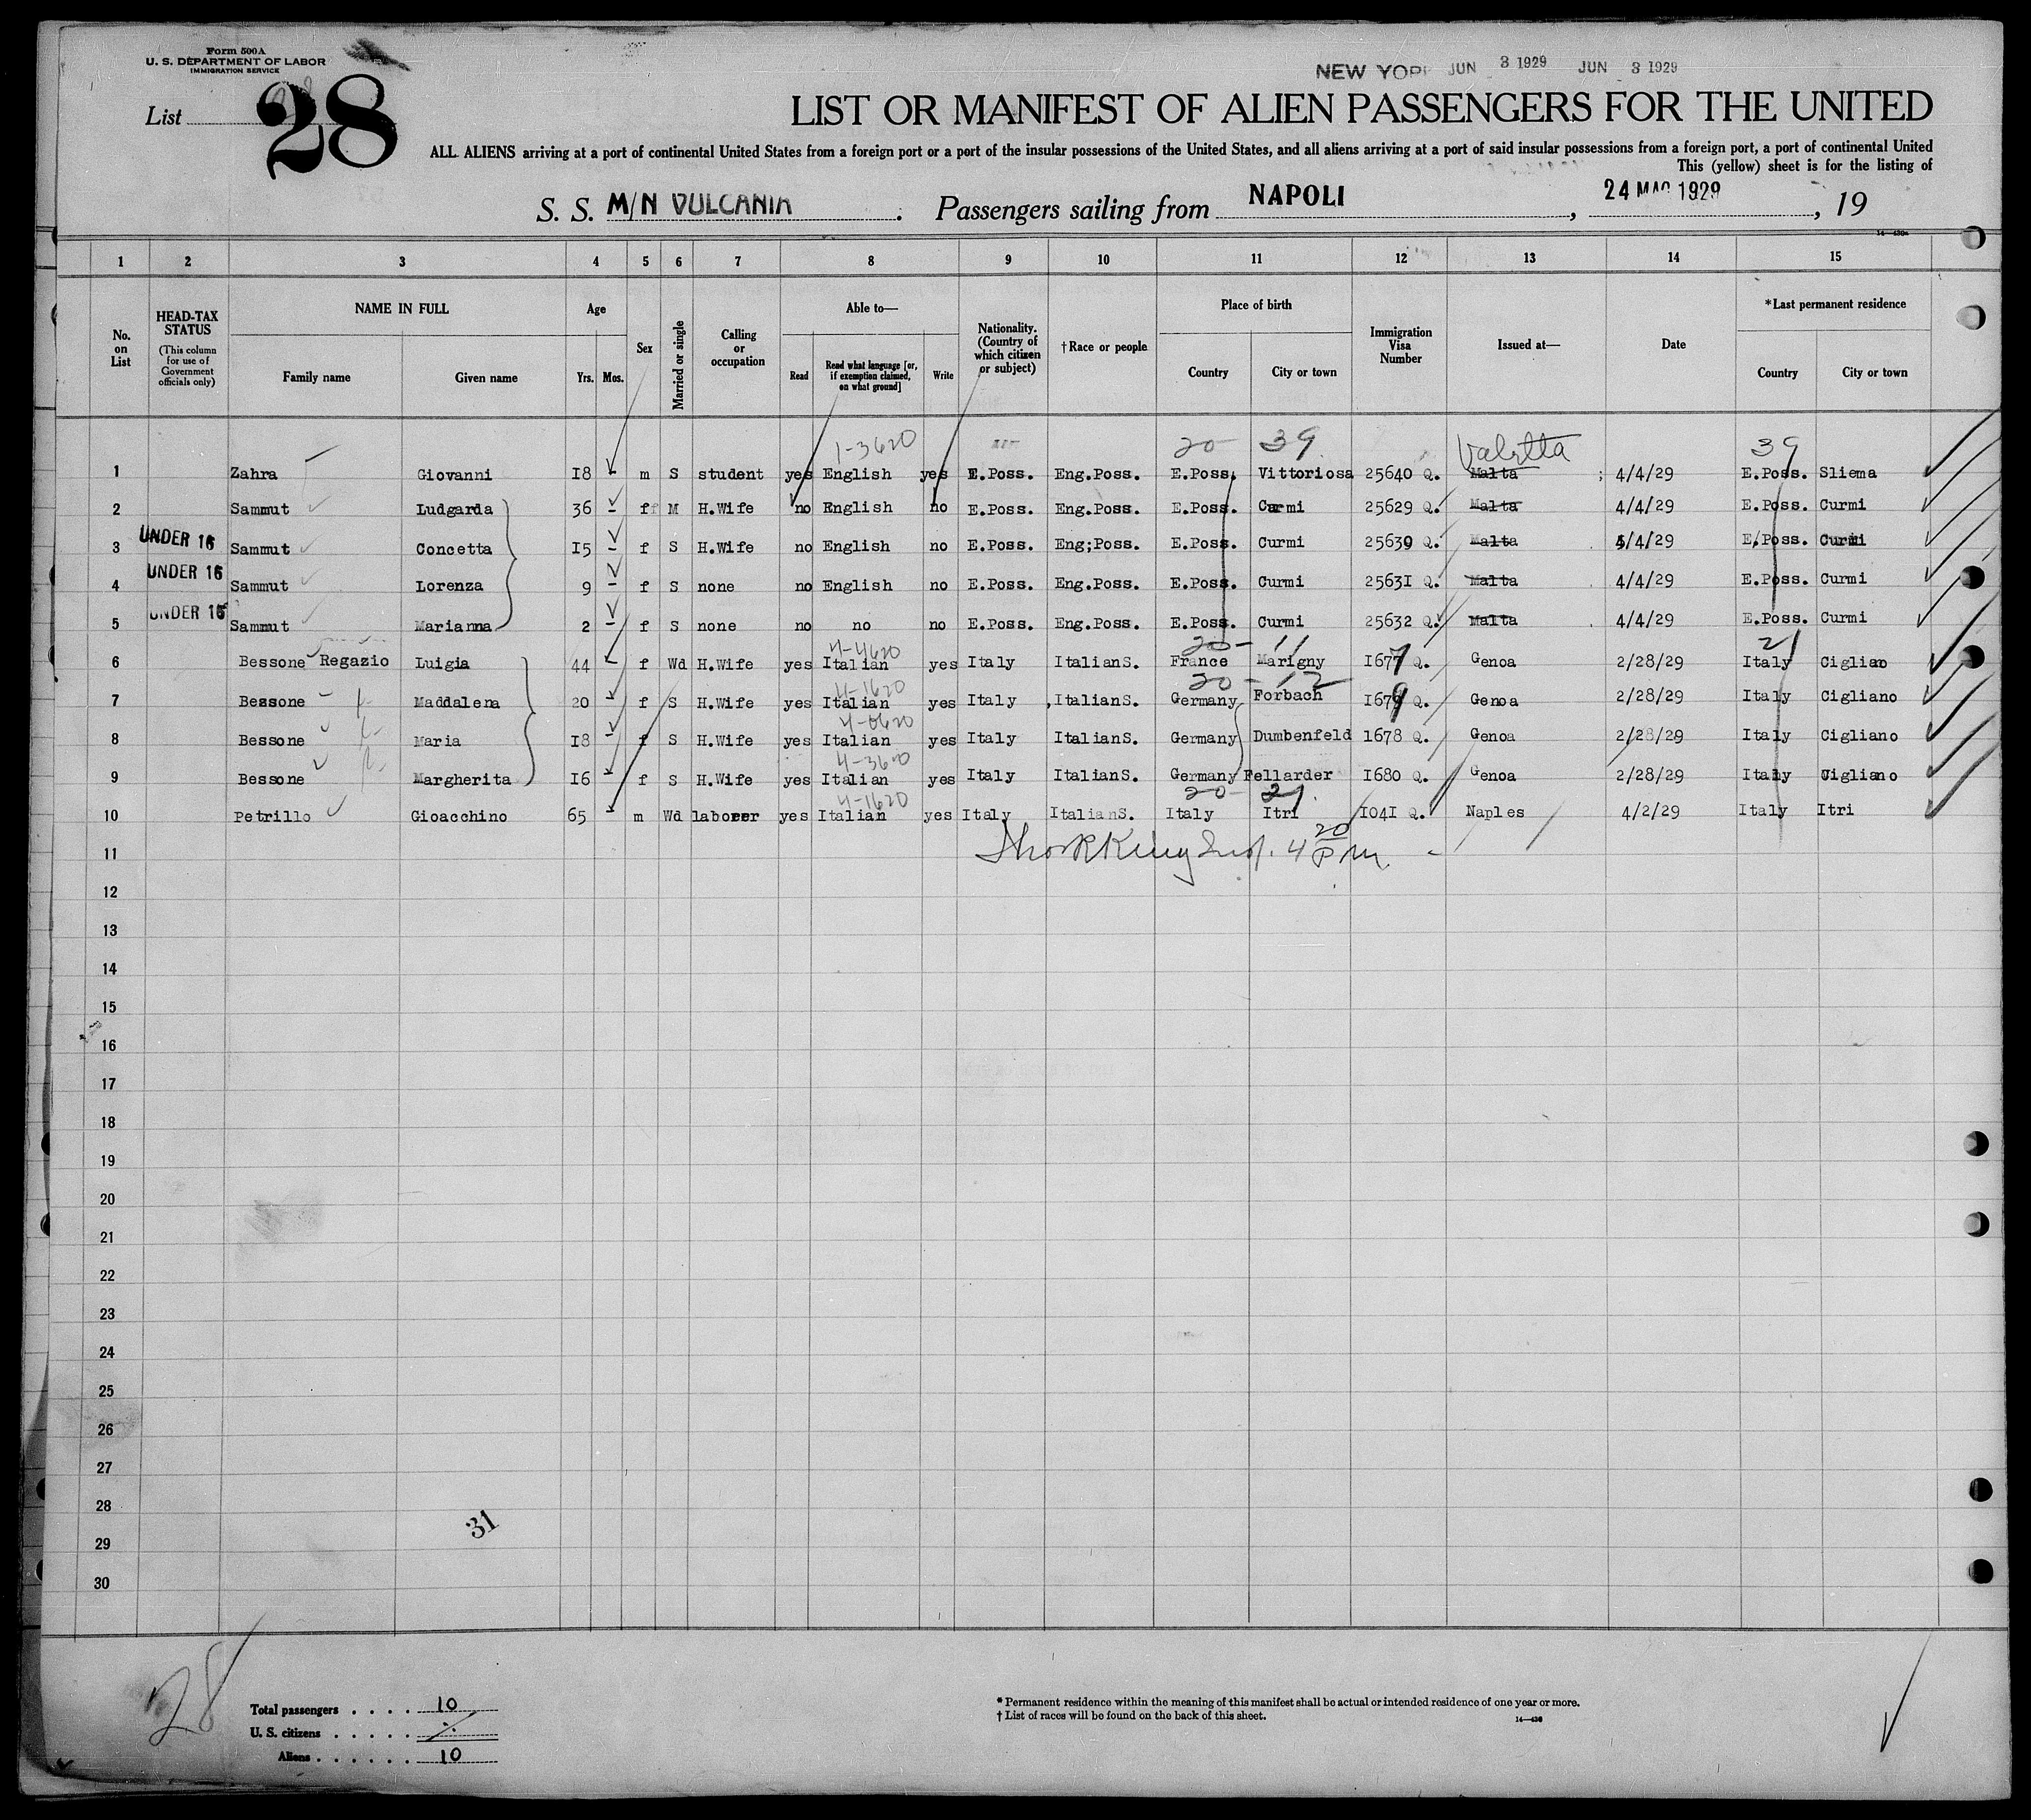 Form 500A
U. S. DEPARTMENT OF LABOR
IMMIGRATION SERVICE
NEW YORK JUN 3 1929 JUN 3 1929
List 28
LIST OR MANIFEST OF ALIEN PASSENGERS FOR THE UNITED
ALL ALIENS arriving at a port of continental United States from a foreign port or a port of the insular possessions of the United States, and all aliens arriving at a port of said insular possessions from a foreign port, a port of continental United
This (yellow) sheet is for the listing of
S. S. M/N VULCANIA. Passengers sailing from NAPOLI, 24 MAG 1929, 19
1 2 3 4 5 6 7 8 9 10 11 12 13 14 15
No. on List
HEAD-TAX STATUS
(This column for use of Government officials only)
NAME IN FULL
Family name Given name
Age
Yrs. Mos.
Sex
Married or single
Calling or occupation
Able to—
Read
Read what language [or, if exemption claimed, on what ground]
Write
Nationality. (Country of which citizen or subject)
†Race or people
Place of birth
Country City or town
Immigration Visa Number
Issued at—
Date
*Last permanent residence
Country City or town
1-3620 20 39 Valetta 39
1 Zahra Giovanni 18 - m S student yes English yes E.Poss. Eng.Poss. E.Poss. Vittoriosa 25640 Q. Malta 4/4/29 E.Poss. Sliema
2 Sammut Ludgarda 36 - f M H.Wife no English no E.Poss. Eng.Poss. E.Poss. Curmi 25629 Q. Malta 4/4/29 E.Poss. Curmi
UNDER 16
3 Sammut Concetta 15 - f S H.Wife no English no E.Poss. Eng;Poss. E.Poss. Curmi 25639 Q. Malta 4/4/29 E.Poss. Curmi
UNDER 16
4 Sammut Lorenza 9 - f S none no English no E.Poss. Eng.Poss. E.Poss. Curmi 25631 Q. Malta 4/4/29 E.Poss. Curmi
UNDER 16
5 Sammut Marianna 2 - f S none no no no E.Poss. Eng.Poss. E.Poss. Curmi 25632 Q. Malta 4/4/29 E.Poss. Curmi
4-4620 20 - 11 21
6 Bessone Regazio Luigia 44 - f Wd H.Wife yes Italian yes Italy ItalianS. France Marigny 1677 Q. Genoa 2/28/29 Italy Cigliano
4-1620 20 - 12
7 Bessone Maddalena 20 - f S H.Wife yes Italian yes Italy ItalianS. Germany Forbach 1679 Q. Genoa 2/28/29 Italy Cigliano
4-0620
8 Bessone Maria 18 - f S H.Wife yes Italian yes Italy ItalianS. Germany Dumbenfeld 1678 Q. Genoa 2/28/29 Italy Cigliano
4-3600
9 Bessone Margherita 16 - f S H.Wife yes Italian yes Italy ItalianS. Germany Fellarder 1680 Q. Genoa 2/28/29 Italy Cigliano
4-1620 20 - 21
10 Petrillo Gioacchino 65 - m Wd laborer yes Italian yes Italy ItalianS. Italy Itri 1041 Q. Naples 4/2/29 Italy Itri
11
12
13
14
15
16
17
18
19
20
21
22
23
24
25
26
27
28
29
30
31
28
Total passengers . . . . 10
U. S. citizens . . . . .
Aliens . . . . . . 10
* Permanent residence within the meaning of this manifest shall be actual or intended residence of one year or more.
† List of races will be found on the back of this sheet.